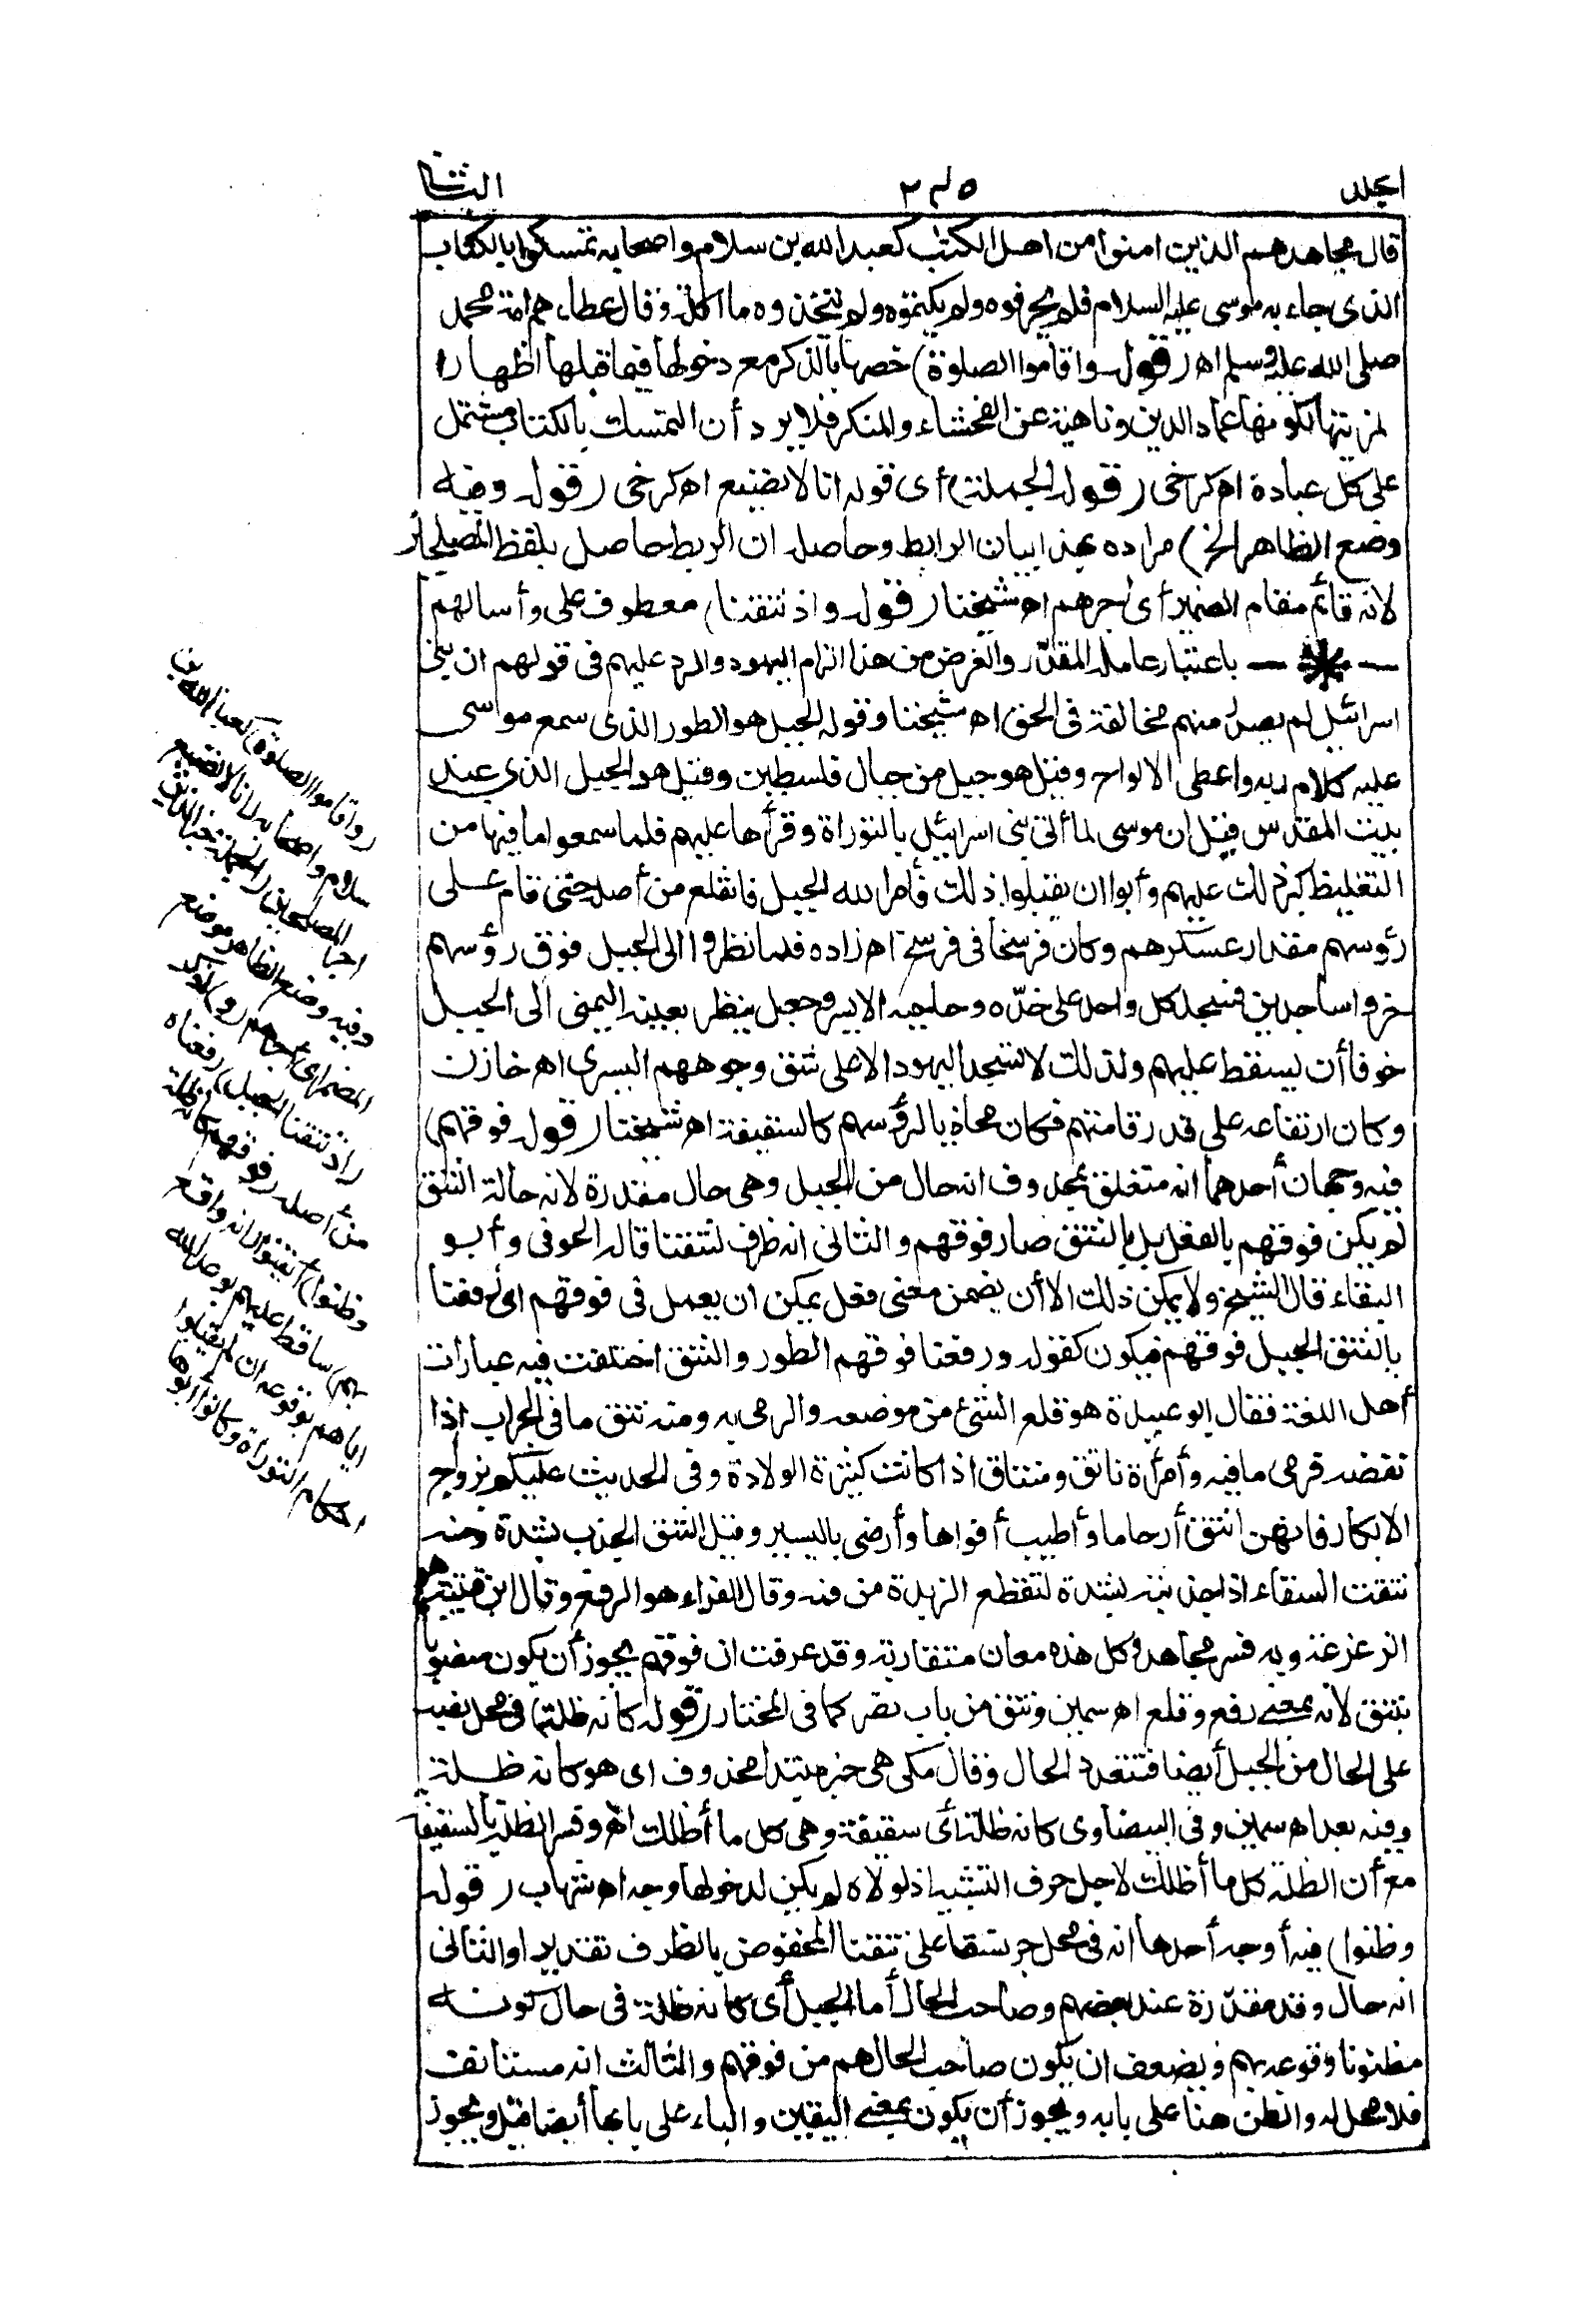 المجلد ٣٤٥ الثانى
قال مجاهد هم الذين امنوا من اهل الكتب كعبد الله بن سلام واصحابه تمسكوا بالكتاب
الذى جاء به موسى عليه السلام فلم يحرفوه ولم يكتموه ولم يتخذوه مأكلة وقال عطاء هم امة محمد
صلى الله عليه وسلم اه (قوله واقاموا الصلوة) خصها بالذكر مع دخولها فيما قبلها اظهارا
لمزيتها لكونها عماد الدين وناهية عن الفحشاء والمنكر فلا يرد أن التمسك بالكتاب مشتمل
على كل عبادة اه كرخى (قوله الجملة) أى قوله انا لا نضيع اه كرخى (قوله وفيه
وضع الظاهر الخ) مراده بهذا بيان الرابط وحاصله ان الربط حاصل بلفظ المصلحين
لانه قائم مقام الضمير أى أجرهم اه شيخنا (قوله واذ نتقنا) معطوف على وأسألهم
باعتبار عامله المقدّر والغرض من هذا الزام اليهود والرد عليهم فى قولهم ان بنى
اسرائيل لم يصدر منهم مخالفة فى الحق اه شيخنا وقوله الجبل هو الطور الذى سمع موسى
عليه كلام ربه واعطى الالواح وقيل هو جبل من جبال فلسطين وقيل هو الجبل الذى عند
بيت المقدس قيل ان موسى لما أتى بنى اسرائيل بالتوراة وقرأها عليهم فلما سمعوا ما فيها من
التغليظ كبر ذلك عليهم وأبوا ان يقبلوا ذلك فأمر الله الجبل فانقلع من أصله حتى قام على
رؤسهم مقدار عسكرهم وكان فرسخا فى فرسخ اه زاده فلما نظروا الى الجبل فوق رؤسهم
خروا ساجدين فسجد كل واحد على خدّه وحاجبه الايسر وجعل ينظر بعينه اليمنى الى الجبل
خوفا أن يسقط عليهم ولذلك لا تسجد اليهود الا على شق وجوههم اليسرى اه خازن
وكان ارتفاعه على قدر قامتهم فكان محاذيا لرؤسهم كالسقيفة اه شيخنا (قوله فوقهم)
فيه وجهان أحدهما انه متعلق بمحذوف انه حال من الجبل وهى حال مقدرة لانه حالة النتق
لم يكن فوقهم بالفعل بل بالنتق صار فوقهم والثانى انه ظرف لنتقنا قاله الحوفى وأبو
البقاء قال الشيخ ولا يمكن ذلك الا أن يضمن معنى فعل يمكن ان يعمل فى فوقهم اى رفعنا
بالنتق الجبل فوقهم فيكون كقوله ورفعنا فوقهم الطور والنتق اختلفت فيه عبارات
أهل اللغة فقال ابو عبيدة هو قلع الشئ من موضعه والرمى به ومنه نتق ما فى الجراب اذا
نفضه فرمى ما فيه وأمرأة ناتق ومنتاق اذا كانت كثيرة الولادة وفى الحديث عليكم بزواج
الابكار فانهن انتق أرحاما وأطيب أفواها وأرضى باليسير وقيل النتق الجذب بشدة ومنه
نتقت السقاء اذا جذبته بشدة لتقطع الزبدة من فمه وقال الفراء هو الرفع وقال ابن قتيبة هو
الزعزعة وبه فسر مجاهد وكل هذه معان متقاربة وقد عرفت ان فوقهم يجوز أن يكون منصوبا
بنتق لانه بمعنى رفع وقلع اه سمين ونتق من باب نصر كما فى المختار (قوله كانه ظلة) فى محل نصب
على الحال من الجبل أيضا فتتعدد الحال وقال مكى هى خبر مبتدأ محذوف اى هو كانه ظلة
وفيه بعد اه سمين وفى البيضاوى كانه ظلة أى سقيفة وهى كل ما أظلك اه وفسر الظلة بالسقيفة
مع أن الظلة كل ما أظلك لاجل حرف التشبيه اذ لولاه لم يكن لدخولها وجه اه شهاب (قوله
وظنوا) فيه أوجه أحدها انه فى محل جر نسقا على نتقنا المخفوض بالظرف تقديرا والثانى
انه حال وقد مقدّرة عند بعضهم وصاحب الحال أما الجبل أى كانه ظلة فى حال كونه
مظنونا وقوعه بهم ويضعف ان يكون صاحب الحال هم من فوقهم والثالث انه مستأنف
فلا محل له والظن هنا على بابه ويجوز أن يكون بمعنى اليقين والباء على بابها أيضا قيل ويجوز
(واقاموا الصلوة) كعبد الله بن
سلام واصحابه (انا لا نضيع
اجر المصلحين) الجملة خبر الذين
وفيه وضع الظاهر موضع
المضمر اى أجرهم (و) اذكر
(اذ نتقنا الجبل) رفعناه
من أصله (فوقهم كانه ظلة
وظنوا) أيقنوا (انه واقع
بهم) ساقط عليهم بوعد الله
اياهم بوقوعه ان لم يقبلوا
احكام التوراة وكانوا أبوها